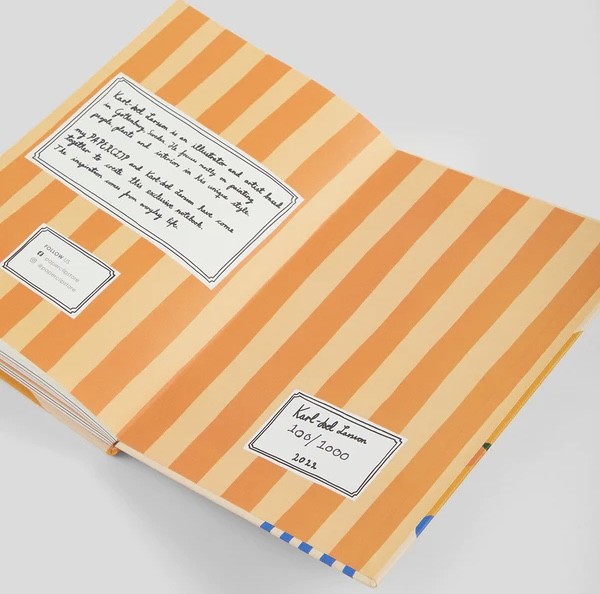 Karl-Joel Larsson is an illustrator and artist based
in Gothenburg, Sweden. He focus mostly on painting
people, plants and interiors in his unique style.
my PAPERCLIP and Karl-Joel Larsson have come
together to create this exclusive notebook.
The inspiration comes from everyday life.
FOLLOW US
@paperclipstore
Karl-Joel Larsson
126/1000
2022